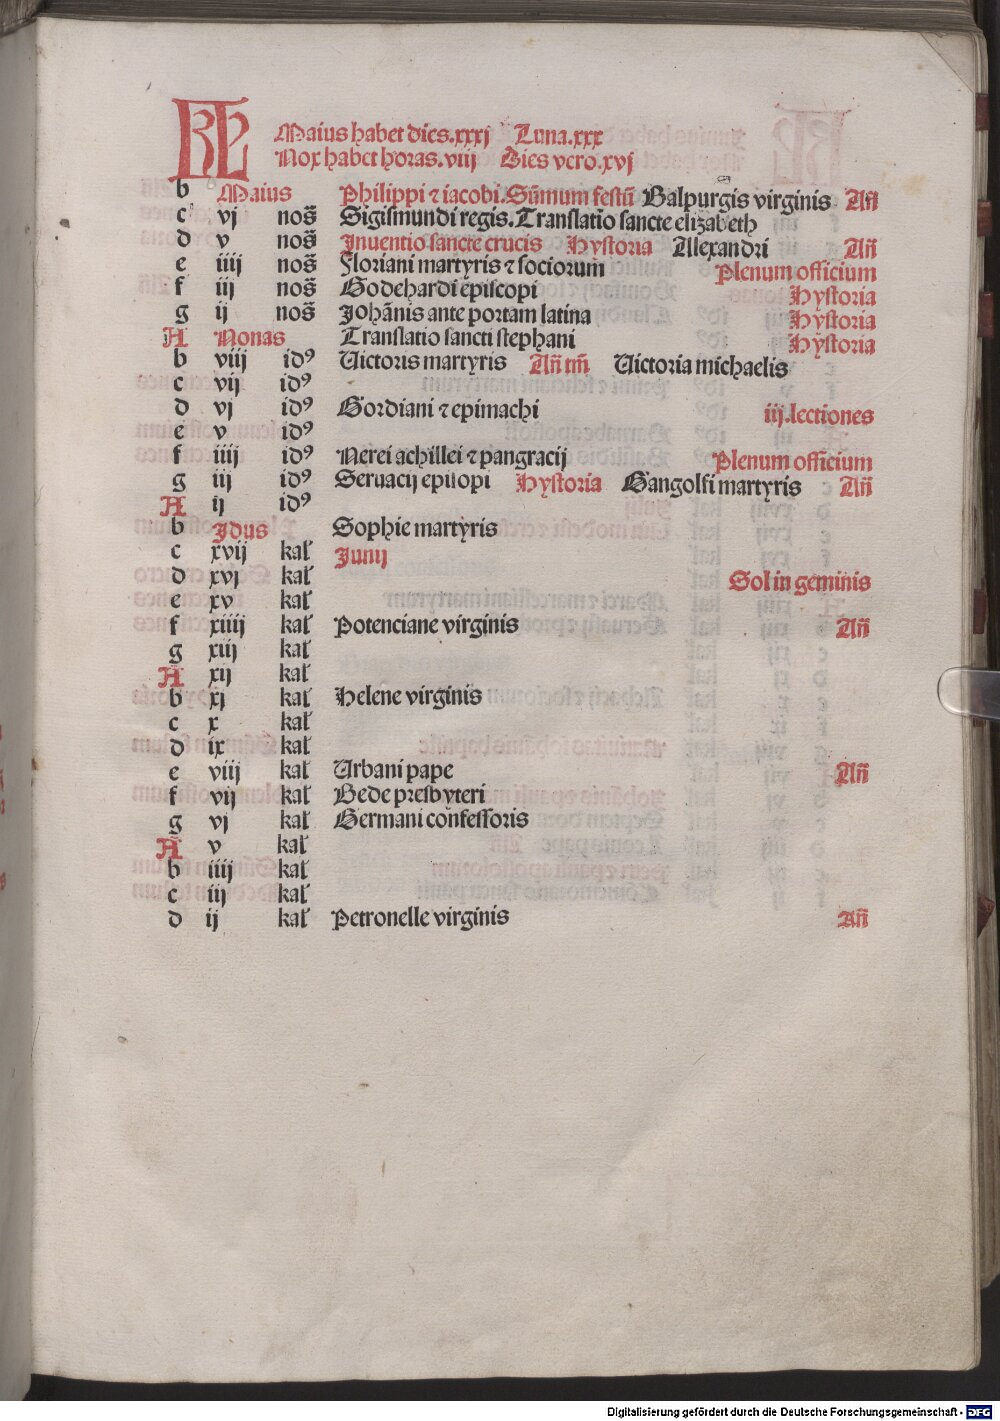 KL Maius habet dies.xxxj Luna.xxx
Nox habet horas.viij Dies vero.xvj
b Maius Philippi ⁊ iacobi.Sūmum festū Balpurgis virginis Añ
c vj nos̄ Sigismundi regis.Translatio sancte elizabeth
d v nos̄ Inuentio sancte crucis Hystoria Allexandri Añ
e iiij nos̄ Floriani martyris ⁊ sociorum Plenum officium
f iij nos̄ Godehardi episcopi Hystoria
g ij nos̄ Johānis ante portam latina Hystoria
A Nonas Translatio sancti stephani Hystoria
b viij idꝰ Uictoris martyris Añ tm̄ Uictoria michaelis
c vij idꝰ
d vj idꝰ Gordiani ⁊ epimachi iij.lectiones
e v idꝰ
f iiij idꝰ Nerei achillei ⁊ pangracij Plenum officium
g iij idꝰ Seruacij epilopi Hystoria Gangolfi martyris Añ
A ij idꝰ
b Jdus Sophie martyris
c xvij kal' Junij
d xvj kal' Sol in geminis
e xv kal'
f xiiij kal' Potenciane virginis Añ
g xiij kal'
A xij kal'
b xj kal' Helene virginis
c x kal'
d ix kal'
e viij kal' Urbani pape Añ
f vij kal' Bede presbyteri
g vj kal' Germani confessoris
A v kal'
b iiij kal'
c iij kal'
d ij kal' Petronelle virginis Añ
Digitalisierung gefördert durch die Deutsche Forschungsgemeinschaft - DFG